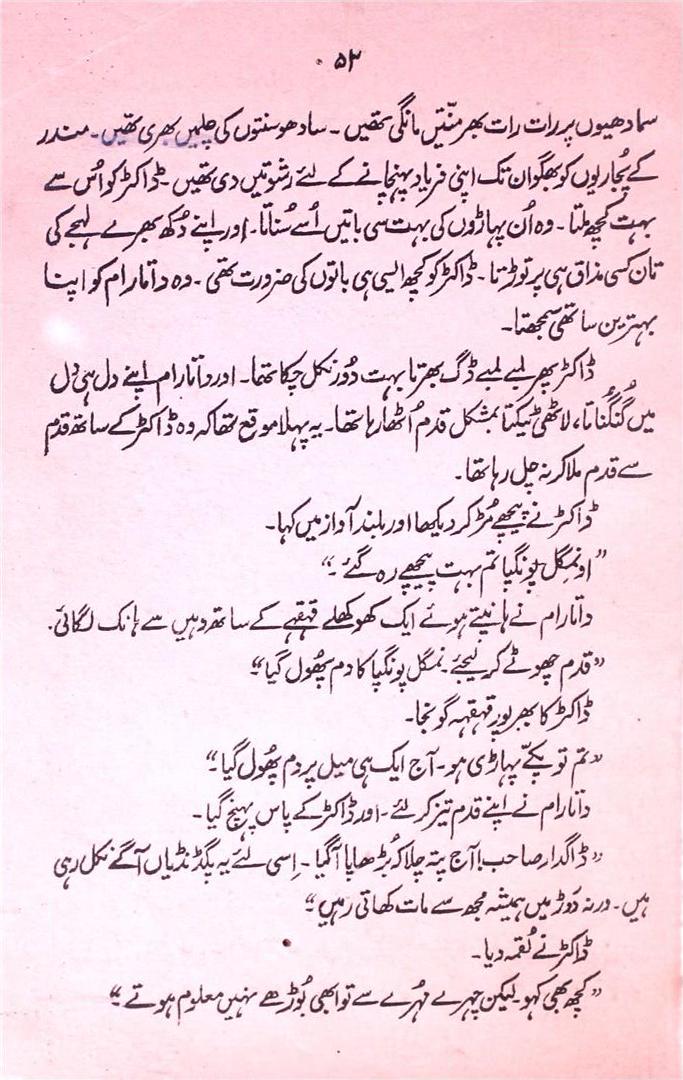 ۵۳
سمادھیوں پر رات رات بھر منّتیں مانگی تھیں۔ سادھو سنتوں کی چلمیں بھری تھیں۔ مندر
کے پُجاریوں کو بھگوان تک اپنی فریاد پہنچانے کے لئے رشوتیں دی تھیں۔ ڈاکٹر کو اُس سے
بہت کچھ ملتا۔ وہ اُن پہاڑوں کی بہت سی باتیں اُسے سُناتا۔ اور اپنے دُکھ بھرے لہجے کی
تان کسی مذاق ہی پر توڑتا۔ ڈاکٹر کو کچھ ایسی ہی باتوں کی ضرورت تھی۔ وہ داتا رام کو اپنا
بہترین ساتھی سمجھتا۔
ڈاکٹر پھر لمبے لمبے ڈگ بھرتا بہت دُور نکل چکا تھا۔ اور داتا رام اپنے دل ہی دل
میں گُنگُناتا، لاٹھی ٹیکتا بمشکل قدم اُٹھا رہا تھا۔ یہ پہلا موقع تھا کہ وہ ڈاکٹر کے ساتھ قدم
سے قدم ملا کر نہ چل رہا تھا۔
ڈاکٹر نے پیچھے مُڑ کر دیکھا اور بلند آواز میں کہا۔
”او نمگل پونگپا تم بہت پیچھے رہ گئے۔“
داتا رام نے ہانپتے ہوئے ایک کھوکھلے قہقہے کے ساتھ وہیں سے ہانک لگائی۔
”قدم چھوٹے کر لیجئے۔ نمگل پونگپا کا دم پھُول گیا“
ڈاکٹر کا بھرپور قہقہہ گونجا۔
”تم تو پکے پہاڑی ہو۔ آج ایک ہی میل پر دم پھُول گیا۔“
داتا رام نے اپنے قدم تیز کر لئے۔ اور ڈاکٹر کے پاس پہنچ گیا۔
”ڈاگدار صاحب! آج پتہ چلا کہ بُڑھاپا آگیا۔ اِسی لئے یہ پگڈنڈیاں آگے نکل رہی
ہیں۔ ورنہ دَوڑ میں ہمیشہ مجھ سے مات کھاتی رہیں“
ڈاکٹر نے لُقمہ دیا۔
”کچھ بھی کہو۔ لیکن چہرے مُہرے سے تو ابھی بُوڑھے نہیں معلوم ہوتے۔“